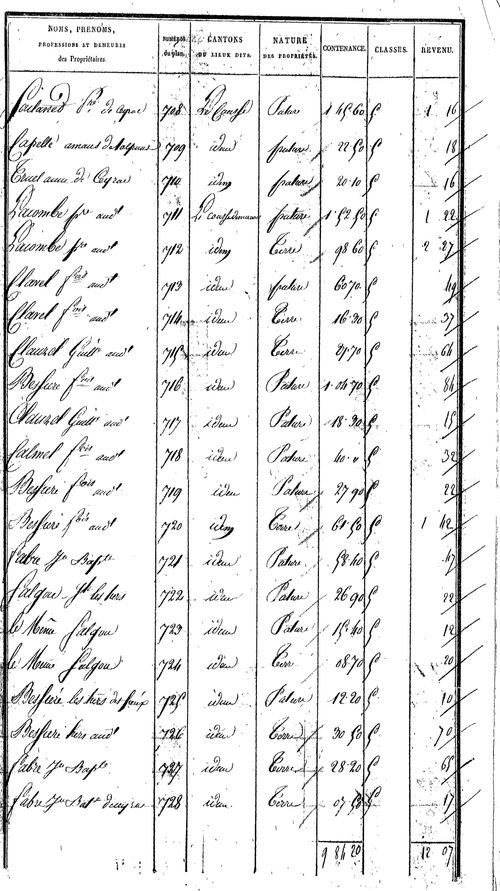 NOMS, PRENOMS, PROFESSIONS ET DEMEURES des Propriétaires. NUMÉROS du plan. CANTONS OU LIEUX DITS. NATURE DES PROPRIÉTÉS. CONTENANCE. CLASSES. REVENU.
de Ceyrac 708 Pature 1 45 60 5 1 16
Capelle 709 idem pature 22 50 5 18
de Ceyrac 710 idem pature 20 10 5 16
Lacombe pre audt 711 pature 1 52 50 5 1 22
Lacombe pre audt 712 idem Terre 98 60 5 2 27
Clavel fcois audt 713 idem pature 60 70 5 49
Clavel fcois audt 714 idem Terre 16 30 5 37
Clauzel Guille audt 715 idem Terre 70 5 64
Bessiere fcois audt 716 idem Pature 1 04 70 5 84
Clauzel Guille audt 717 idem Pature 18 30 5 15
Calmel fcois audt 718 idem Pature 40 " 5 32
Bessiere fcois audt 719 idem Pature 27 90 5 22
Bessiere fcois audt 720 idem Terre 61 50 5 1 42
Fabre Jn Bapte 721 idem Pature 58 40 5 47
Salgou les hers 722 idem Pature 26 90 5 22
le Même Salgou 723 idem Pature 15 40 5 12
le Même Salgou 724 idem Terre 08 70 5 20
Bessiere les hers des feux 725 idem Pature 12 20 5 10
Bessiere hers audt 726 idem Terre 30 50 5 70
Fabre Jn Bapte 727 idem Terre 28 20 5 65
Fabre Jn Bapte 728 idem Terre 07 5 17
9 84 20 12 07